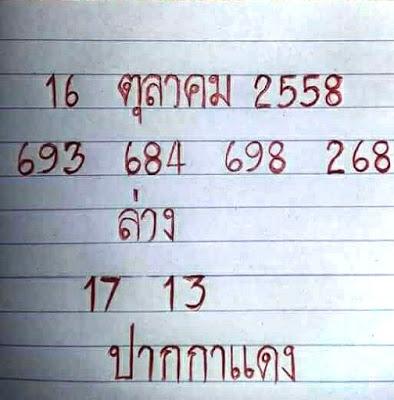 16 ตุลาคม 2558
693 684 698 268
ล่าง
17 13
ปากกาแดง